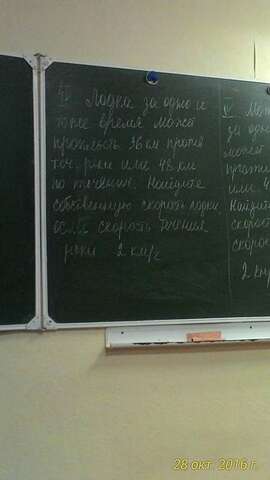 IV Лодка за одно и
тоже время может
проплыть 36 км против
теч. реки или 48 км
по течению. Найдите
собственную скорость лодки,
если скорость течения
реки 2 км/ч
V
за одно
может
или 4
Найдите
скорость
скорость
28 окт. 2016 г.